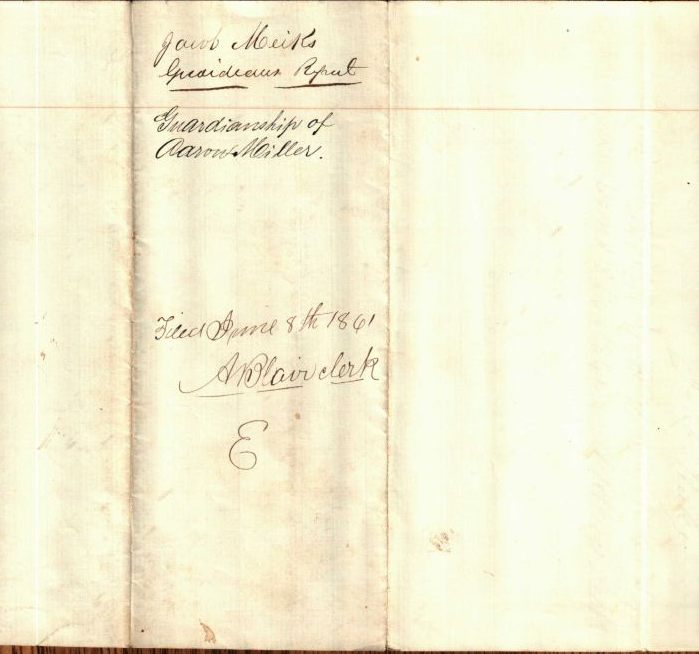 Jacob Meiks
Guardians Report
Guardianship of
Aaron Miller.
Filed June 8th 1861
A Blair clerk
E